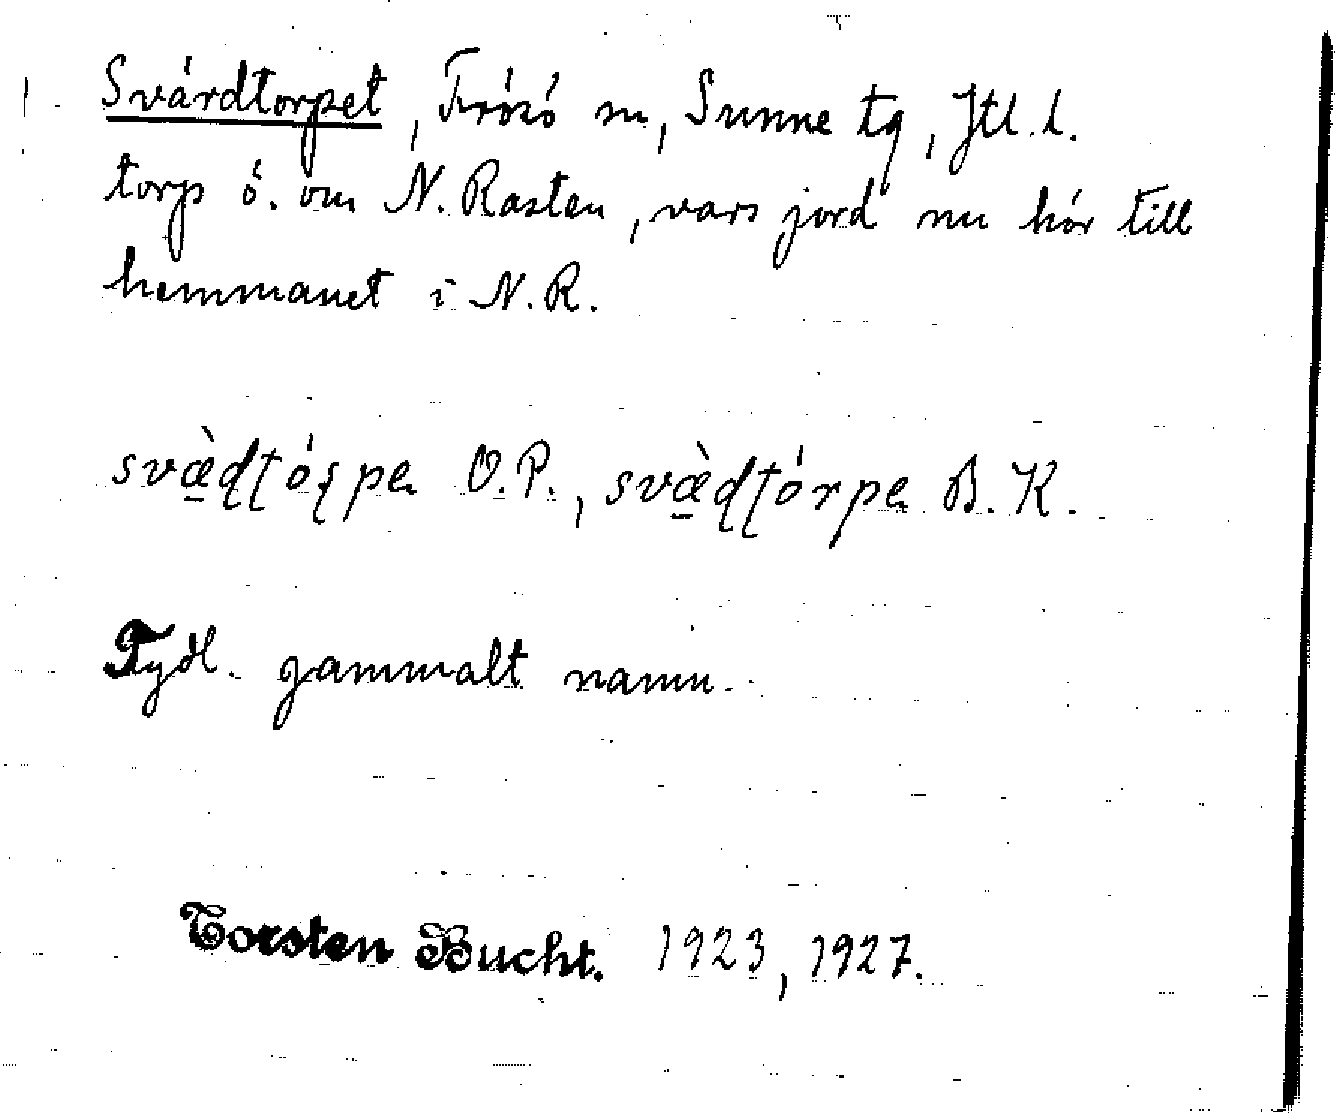 Svárdtorpet, Frósó sn, Sunne tg, Jtl. l.
torp ó. om N. Rasten, vars jord nu hór till
hemmanet i N. R.
svæ̀ɖʈóʂpɐ O.P., svæ̀ɖʈórpɐ B. K.
Tydl. gammalt namn.
Torsten Bucht. 1923, 1927.